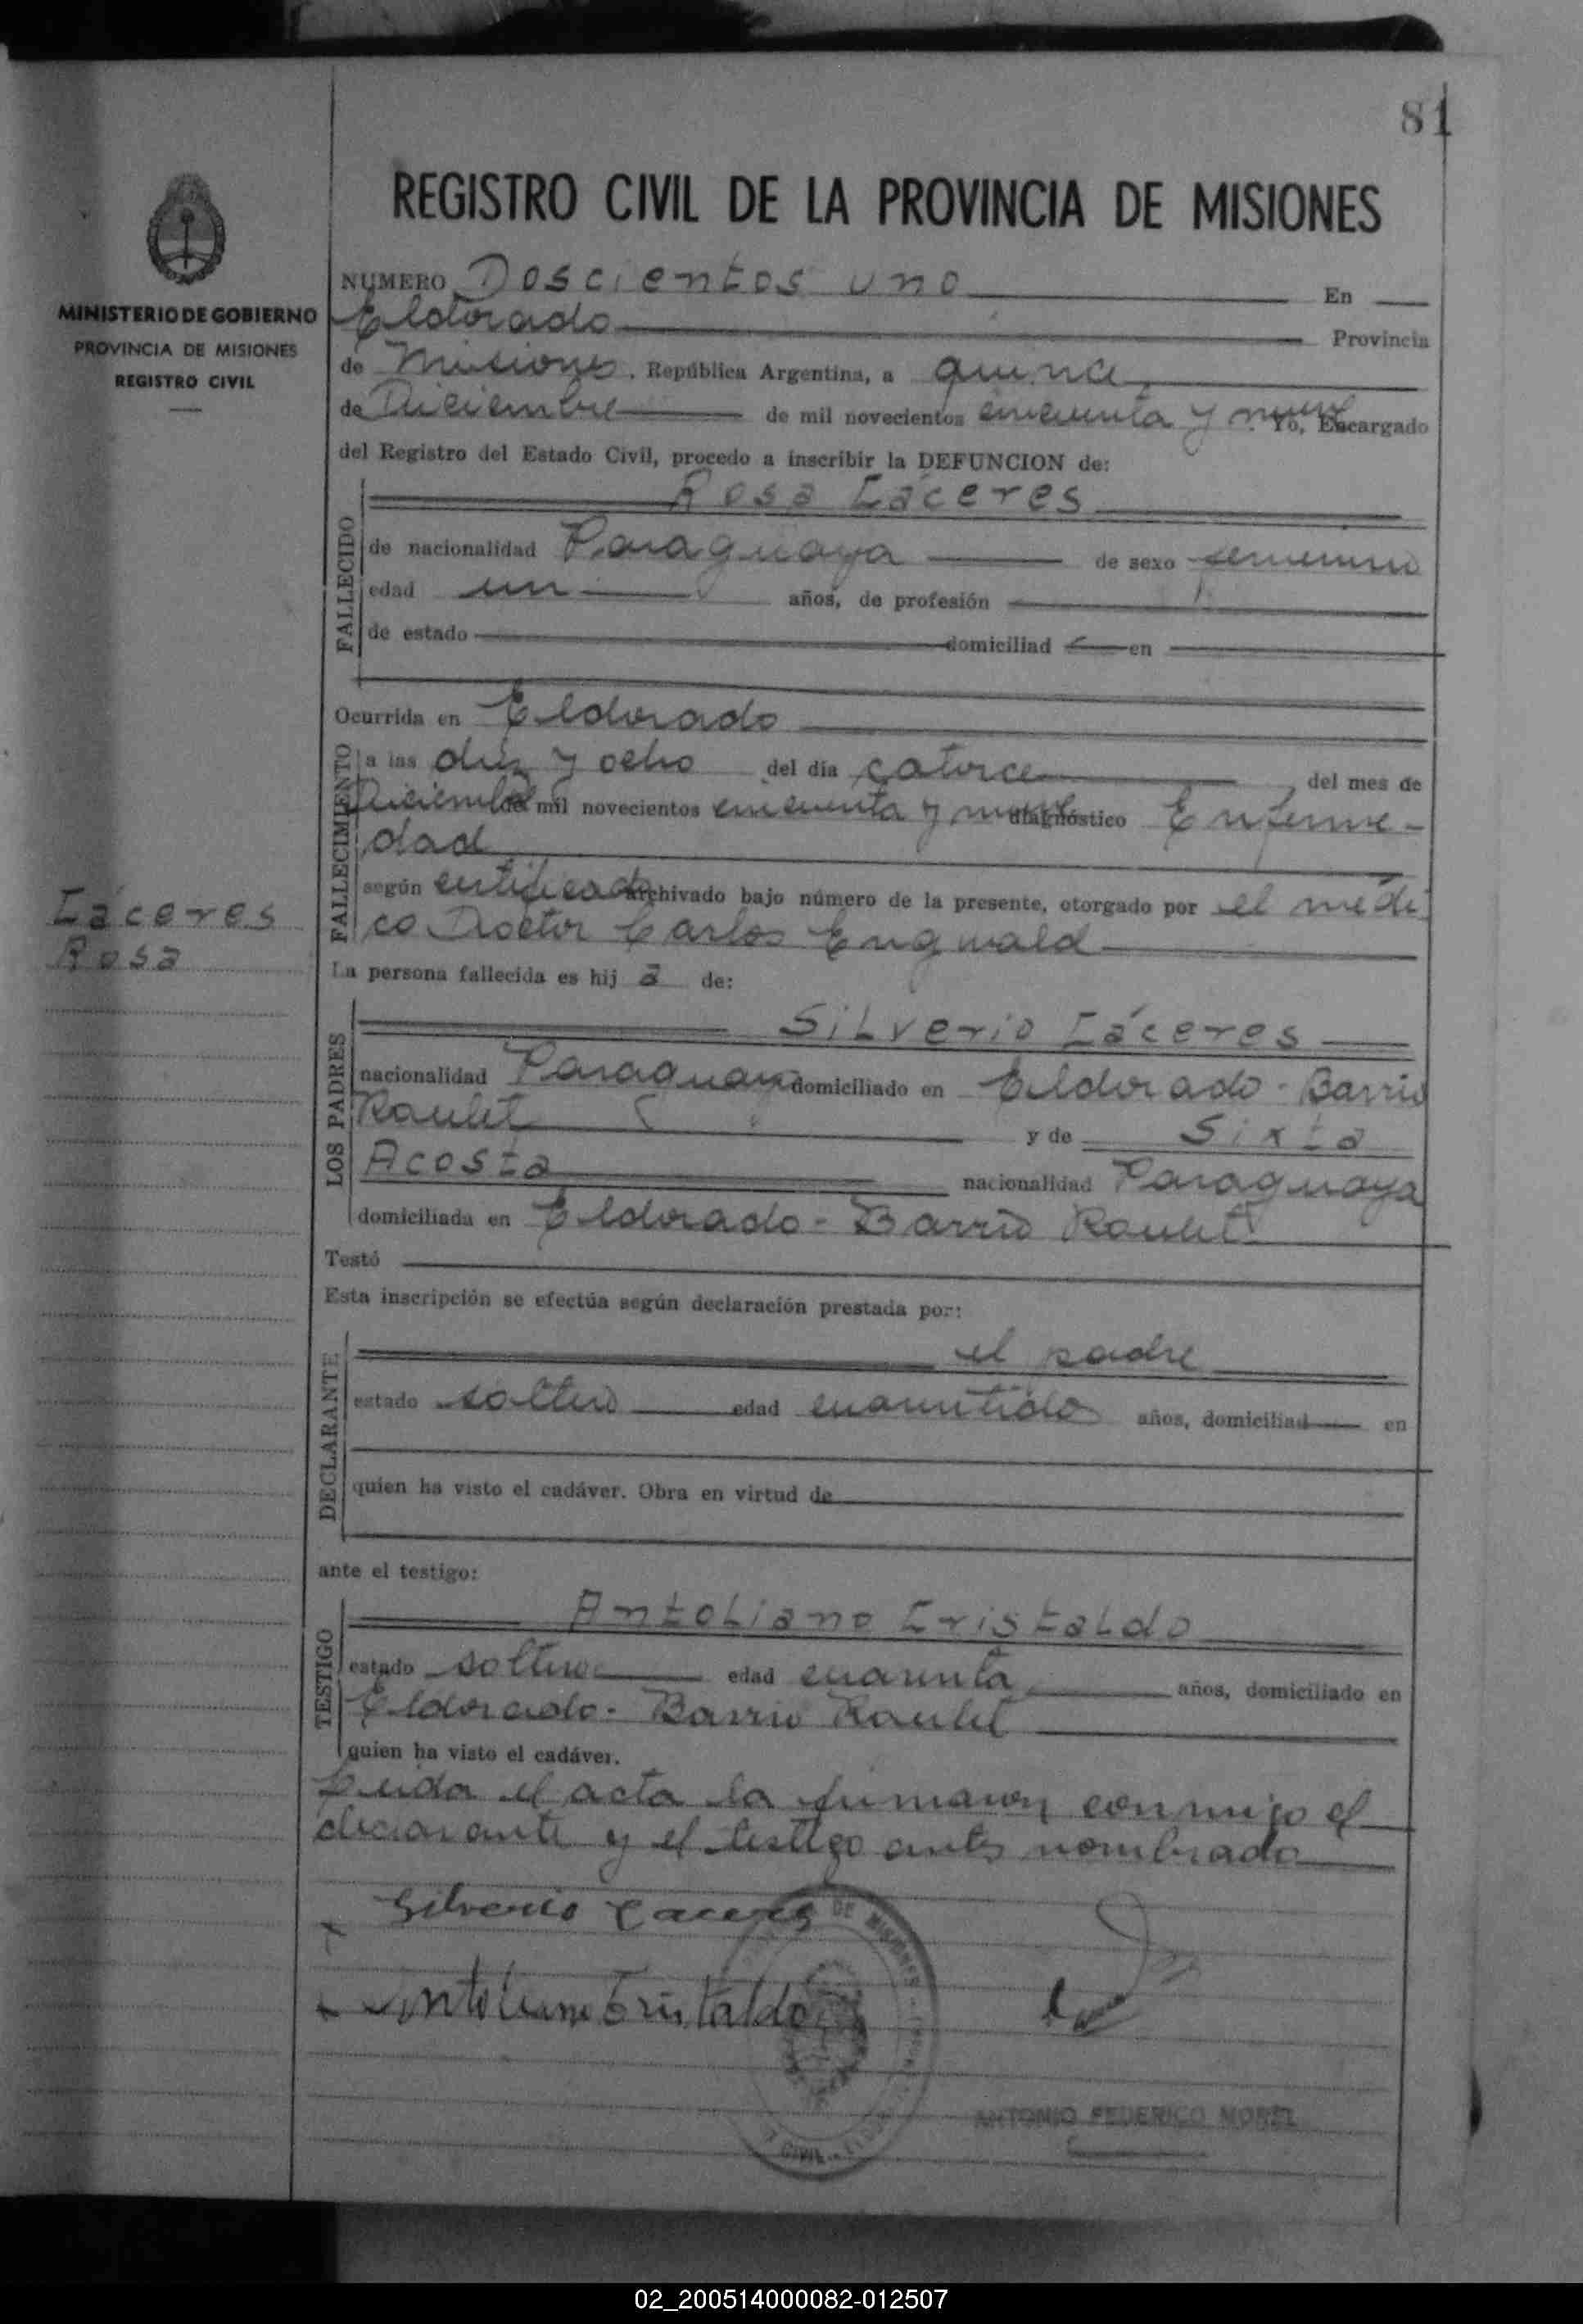 81
REGISTRO CIVIL DE LA PROVINCIA DE MISIONES
MINISTERIO DE GOBIERNO
PROVINCIA DE MISIONES
REGISTRO CIVIL
NUMERO Doscientos uno En
Eldorado Provincia
de Misiones, República Argentina, a quince
de Diciembre de mil novecientos cincuenta y nueve. Yo, Encargado
del Registro del Estado Civil, procedo a inscribir la DEFUNCION de:
Rosa Cáceres
FALLECIDO
de nacionalidad Paraguaya de sexo femenino
edad un años, de profesión
de estado domiciliad en
Ocurrida en Eldorado
FALLECIMIENTO
a las diez y ocho del día catorce, del mes de
Diciembre de mil novecientos cincuenta y nueve diagnóstico Enferme-
dad
según certificado archivado bajo número de la presente, otorgado por el médi
co Doctor Carlos Engwald
Cáceres
Rosa
La persona fallecida es hij a de:
LOS PADRES
Silverio Cáceres
nacionalidad Paraguaya domiciliado en Eldorado - Barrio
Roulet y de Sixta
Acosta nacionalidad Paraguaya
domiciliada en Eldorado - Barrio Roulet
Testó
Esta inscripción se efectúa según declaración prestada por:
DECLARANTE
el padre
estado soltero edad cuarentidos años, domiciliad en
quien ha visto el cadáver. Obra en virtud de
ante el testigo:
TESTIGO
Antoliano Cristaldo
estado soltero edad cuarenta años, domiciliado en
Eldorado - Barrio Roulet
quien ha visto el cadáver.
Leida el acta la firmaron conmigo el
declarante y el testigo antes nombrado
Silverio Caceres
Antoliano Cristaldo
DE MISIONES
CIVIL
ANTONIO FEDERICO MOREL
02_200514000082-012507